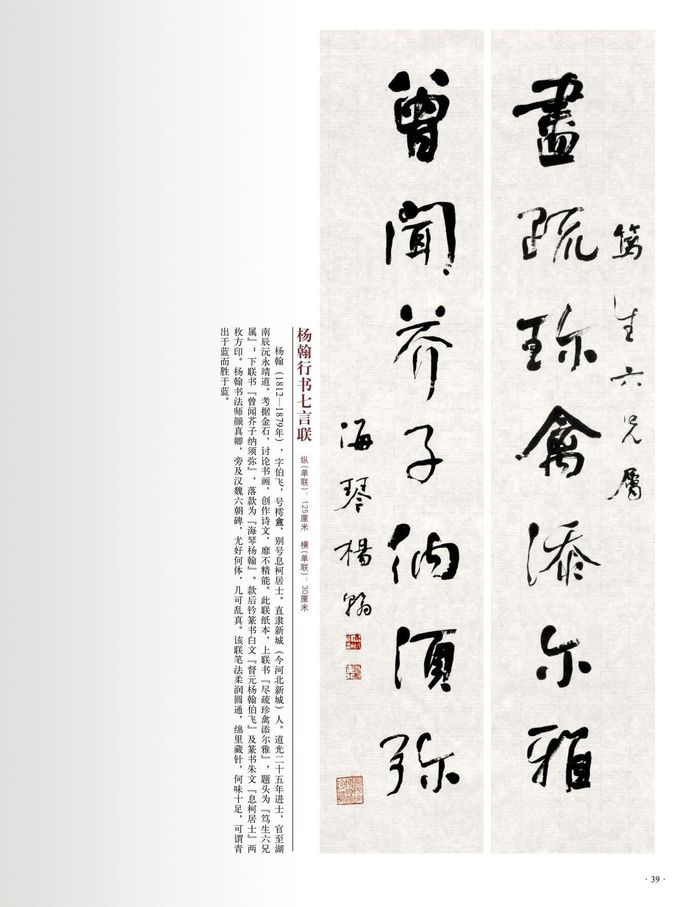 篤生六兄屬
盡疏珎禽添尔雅
曾聞芥子納須弥
海琴楊翰
杨翰行书七言联
纵(单联):125厘米 横(单联):30厘米
杨翰(1812—1879年),字伯飞,号樗盦,别号息柯居士。直隶新城(今河北新城)人。道光二十五年进士,官至湖
南辰沅永靖道。考据金石,讨论书画,创作诗文,靡不精能。此联纸本,上联书『尽疏珍禽添尔雅』,题头为『笃生六兄
属』;下联书『曾闻芥子纳须弥』,落款为『海琴杨翰』。款后钤篆书白文『督元杨翰伯飞』及篆书朱文『息柯居士』两
枚方印。杨翰书法师颜真卿,旁及汉魏六朝碑,尤好何体,几可乱真。该联笔法柔润圆通,绵里藏针,何味十足,可谓青
出于蓝而胜于蓝。
· 39 ·